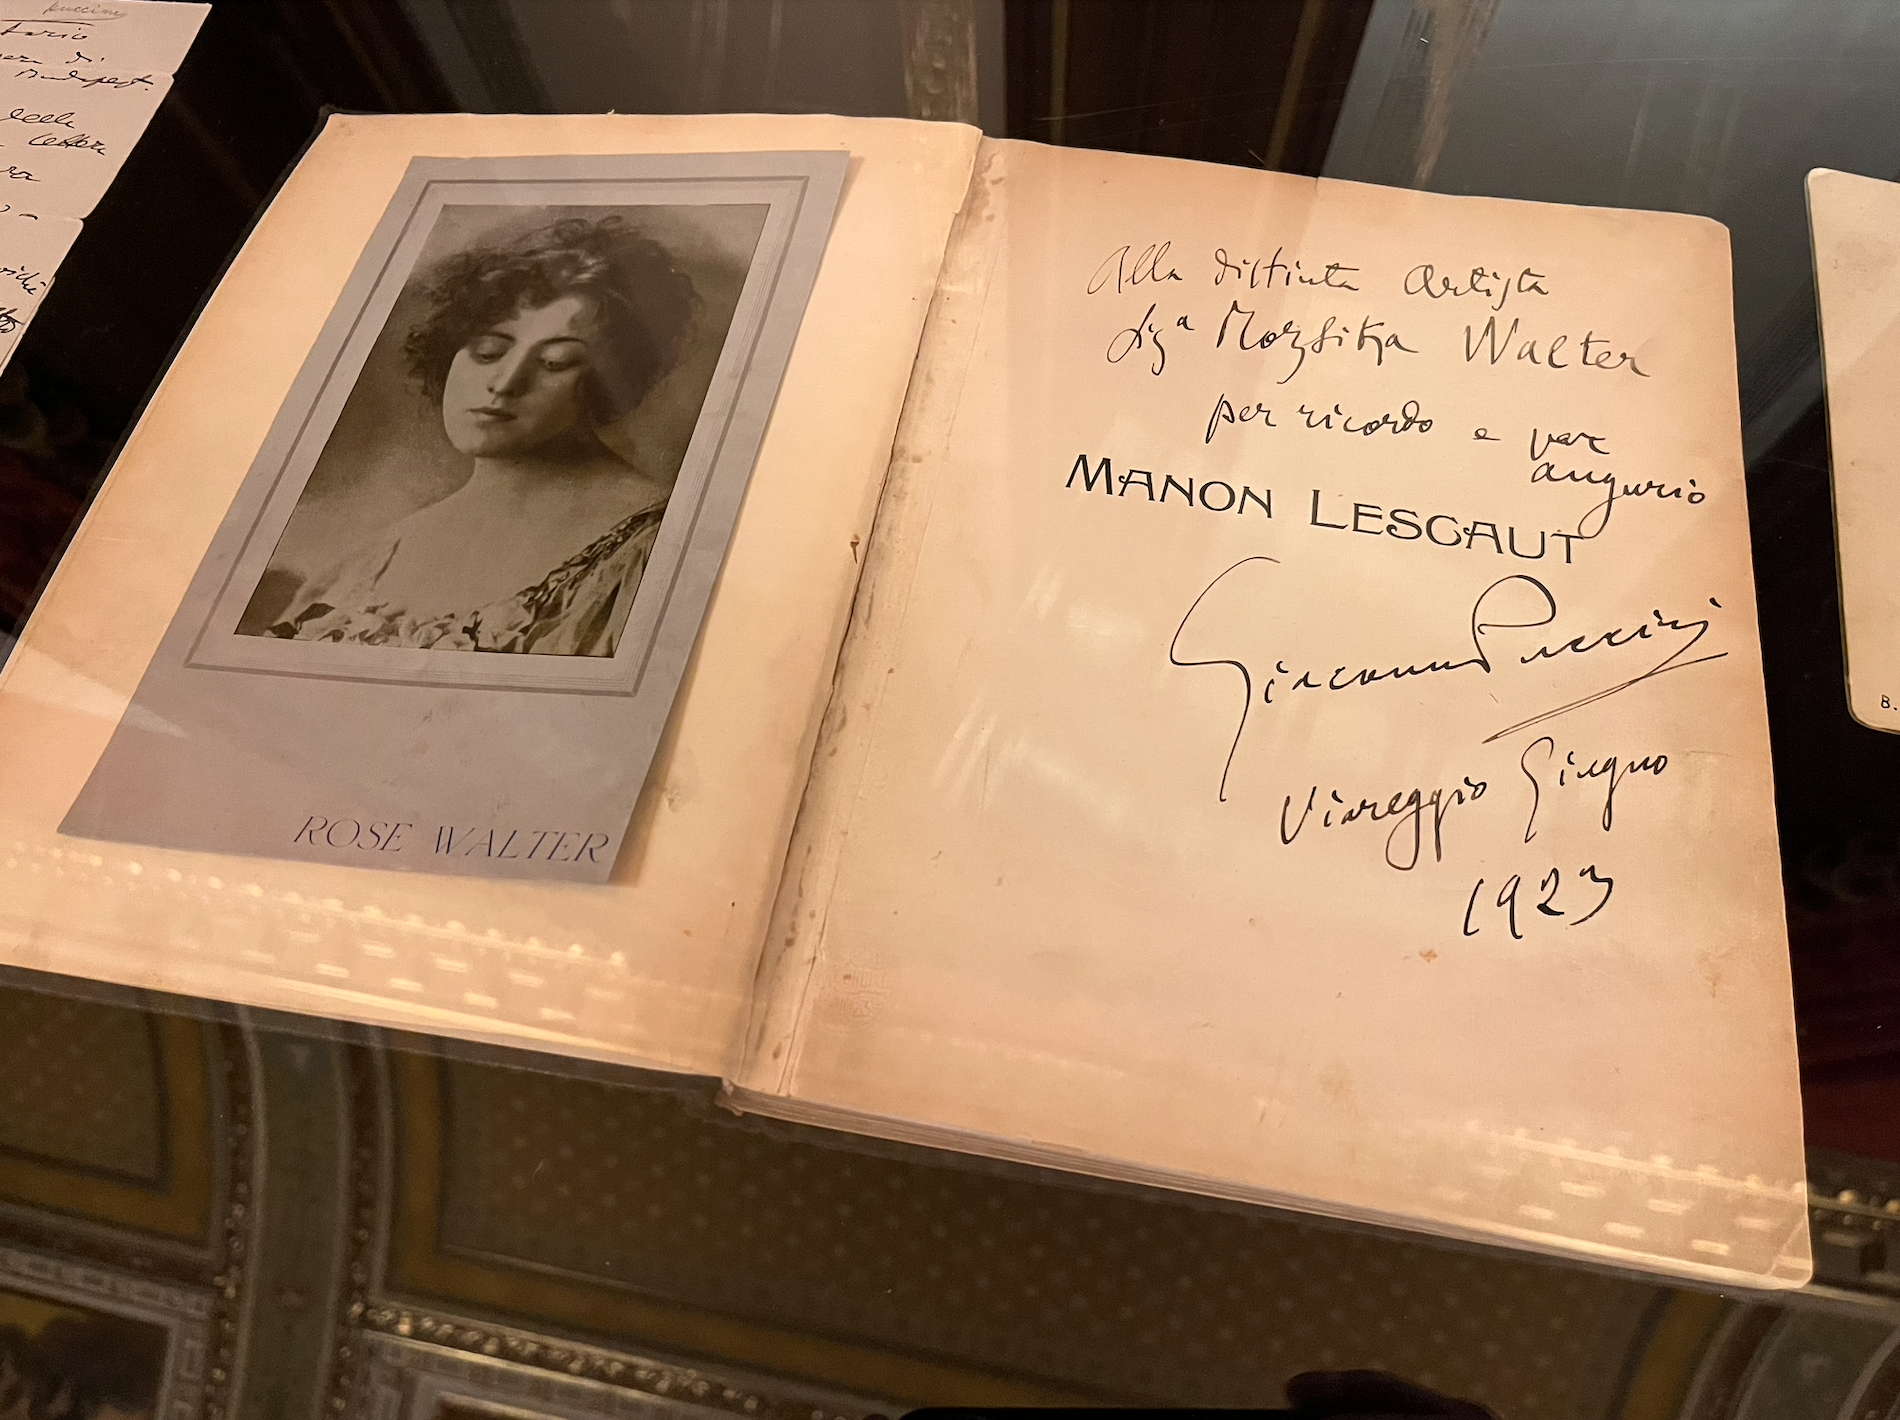 Puccini
di
Budapest.
lettera
ROSE WALTER
Alla distinta Artista
Sigª Rózsika Walter
per ricordo e
augurio
MANON LESCAUT
Giacomo Puccini
Viareggio Giugno
1923
B.